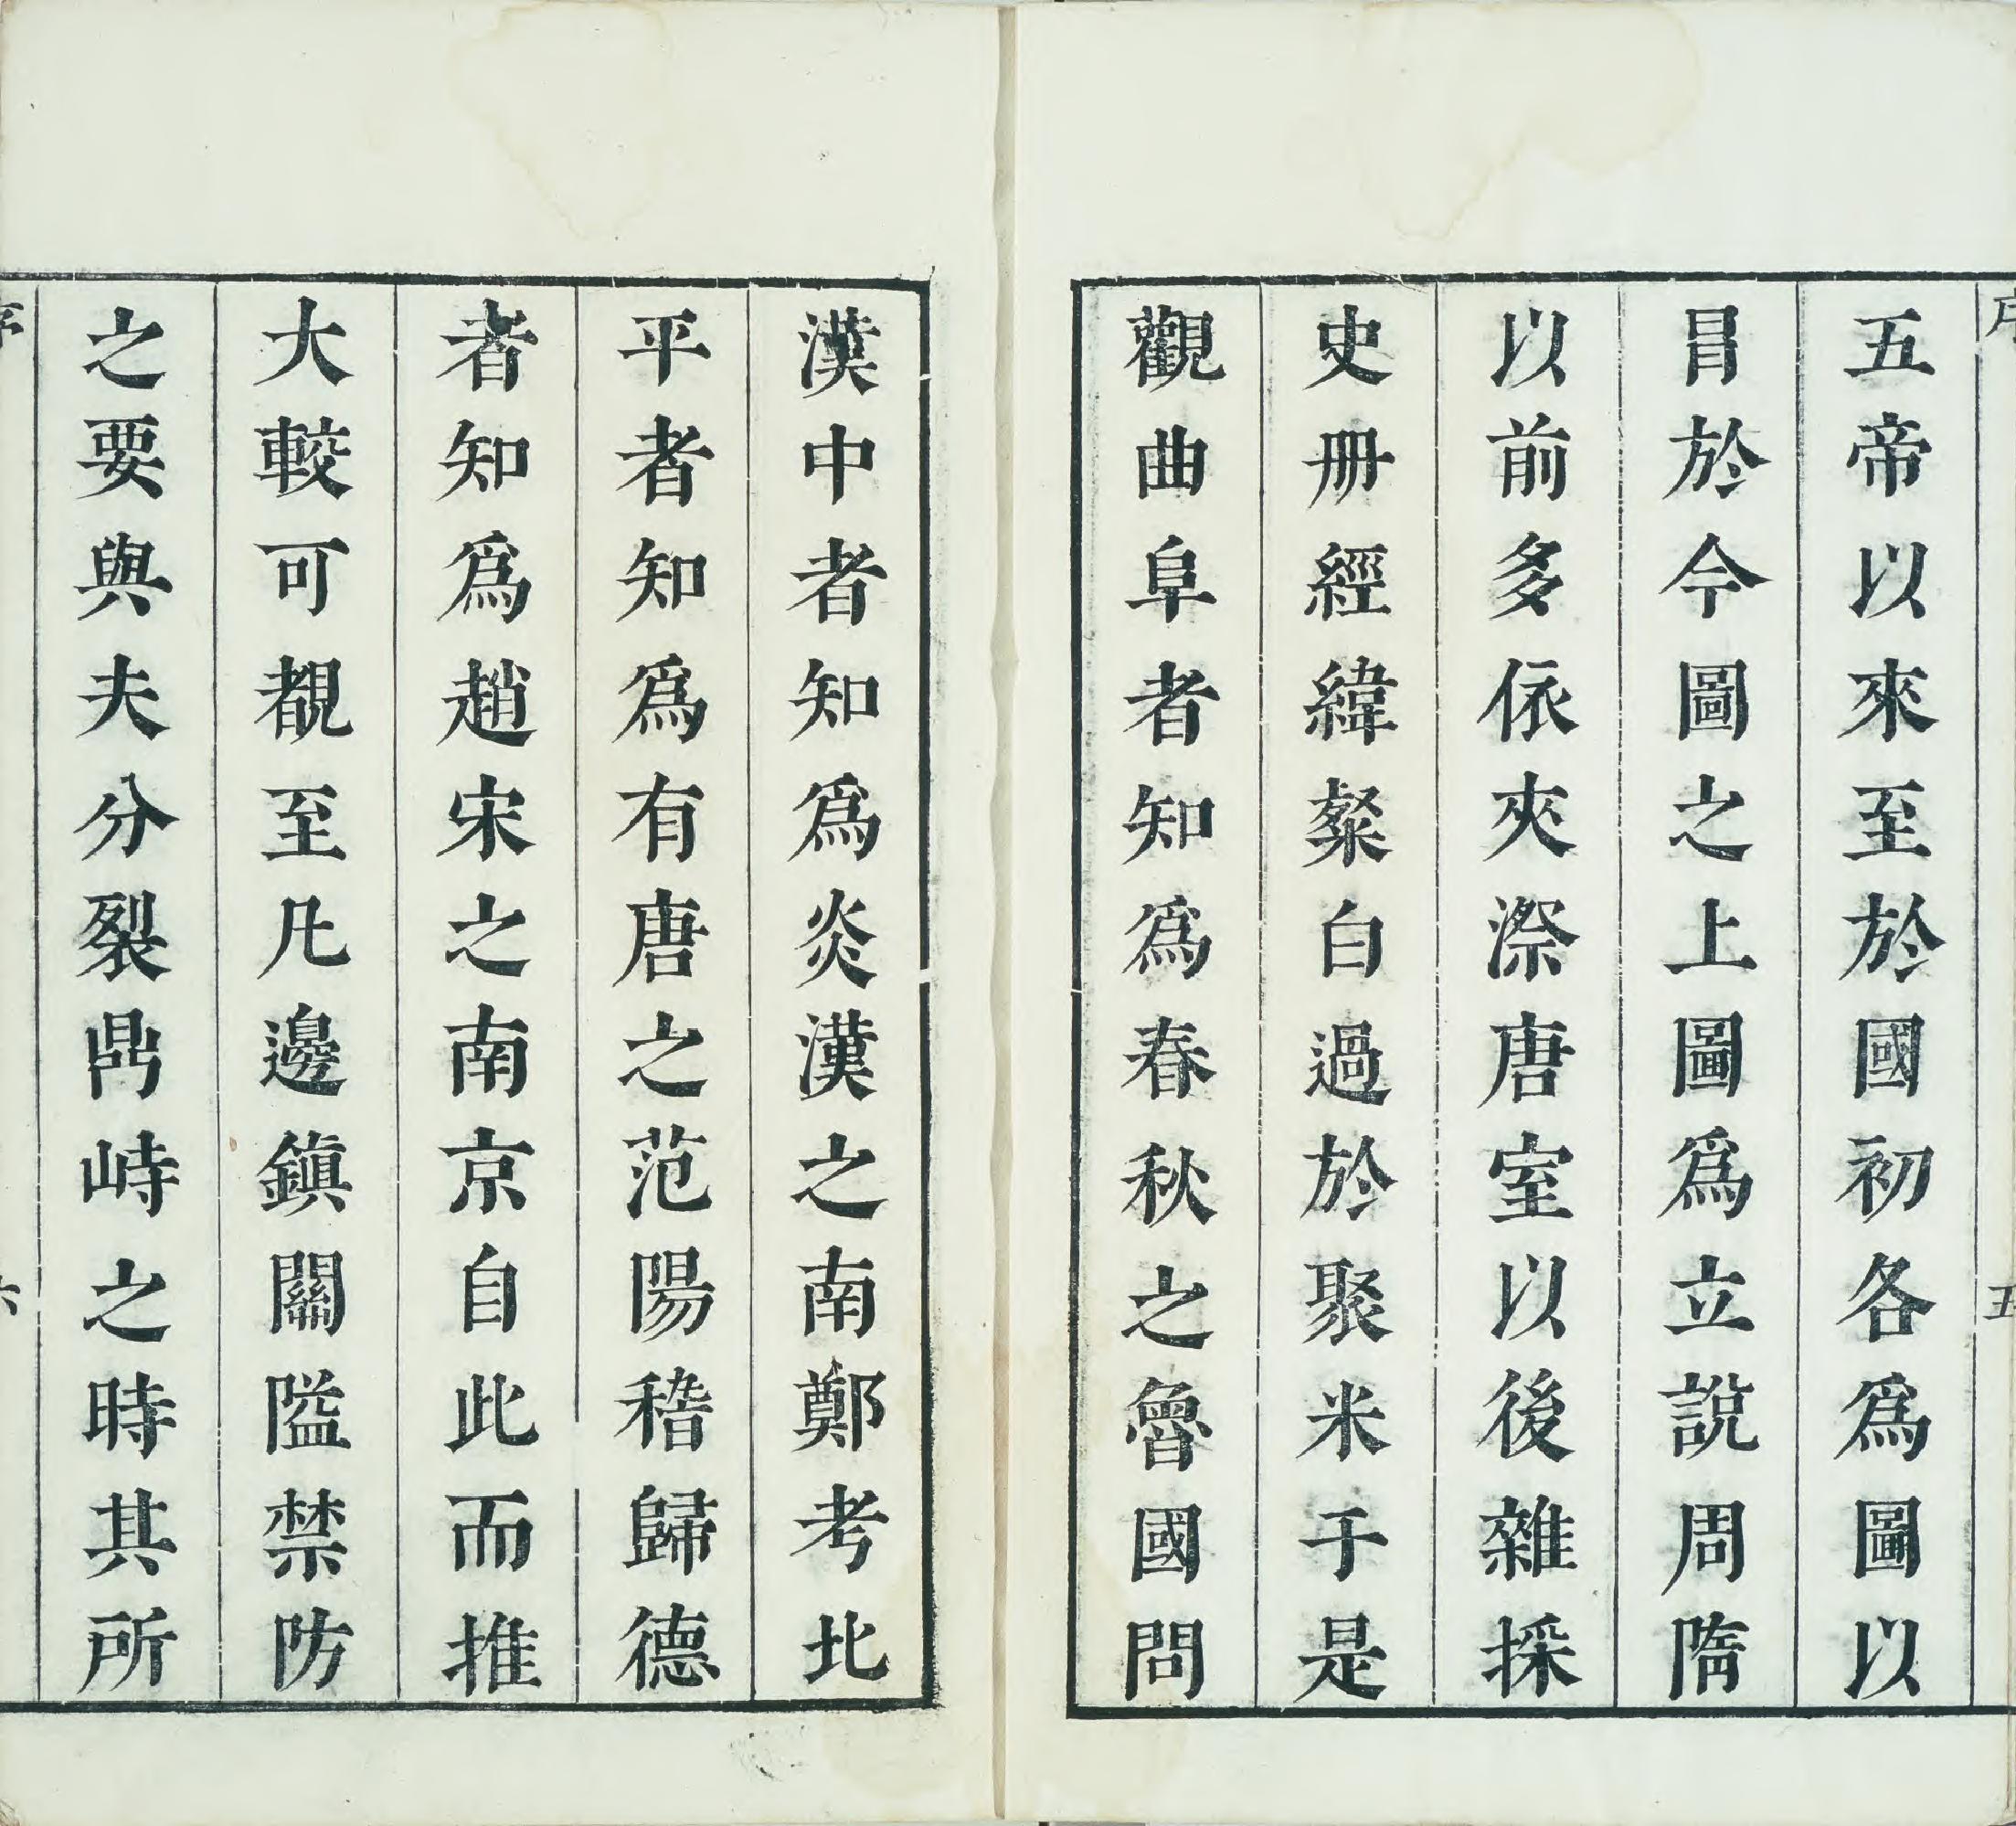 序
五
五帝以來至於國初各爲圖以
冐於今圖之上圖爲立說周隋
以前多依夾漈唐室以後雜採
史册經緯粲白過於聚米于是
觀曲阜者知爲春秋之魯國問
漢中者知爲炎漢之南鄭考北
平者知爲有唐之范陽稽歸德
者知爲趙宋之南京自此而推
大較可覩至凡邊鎮關隘禁防
之要與夫分裂鼎峙之時其所
序
六